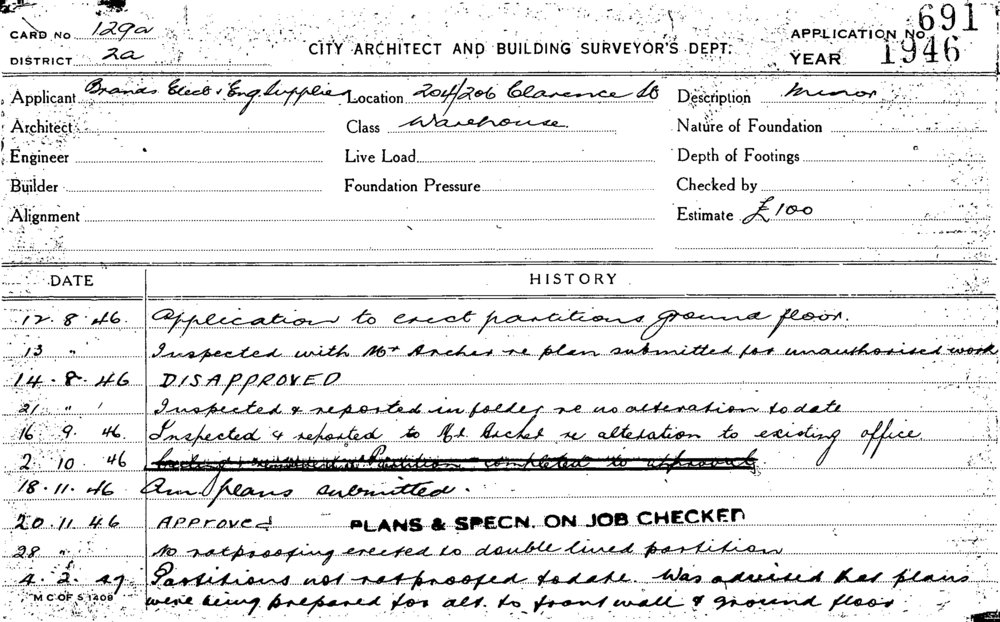 CARD NO 129a
DISTRICT 2a
CITY ARCHITECT AND BUILDING SURVEYOR'S DEPT:
APPLICATION NO 691
YEAR 1946
Applicant Brands Elect & Eng. Supplies Location 204/206 Clarence St Description Minor
Architect Class Warehouse. Nature of Foundation
Engineer Live Load Depth of Footings
Builder Foundation Pressure Checked by
Alignment Estimate £100
DATE HISTORY
12.8.46. Application to erect partitions ground floor.
13 " Inspected with Mr Archer re plan submitted for unauthorised work
14.8.46 DISAPPROVED
21 " ' Inspected & reported in folder re no alteration to date
16 9. 46. Inspected & reported to Mr Archer re alteration to existing office
2 10. 46 Partition completed to approval
18.11.46 Am plans submitted.
20.11.46 APPROVED PLANS & SPECN. ON JOB CHECKED
28 " No ratproofing erected to double lined partition
4.2.47 Partitions not ratproofed to date. Was advised that plans
M C OF S 1408 were being prepared for alt. to front wall & ground floor.